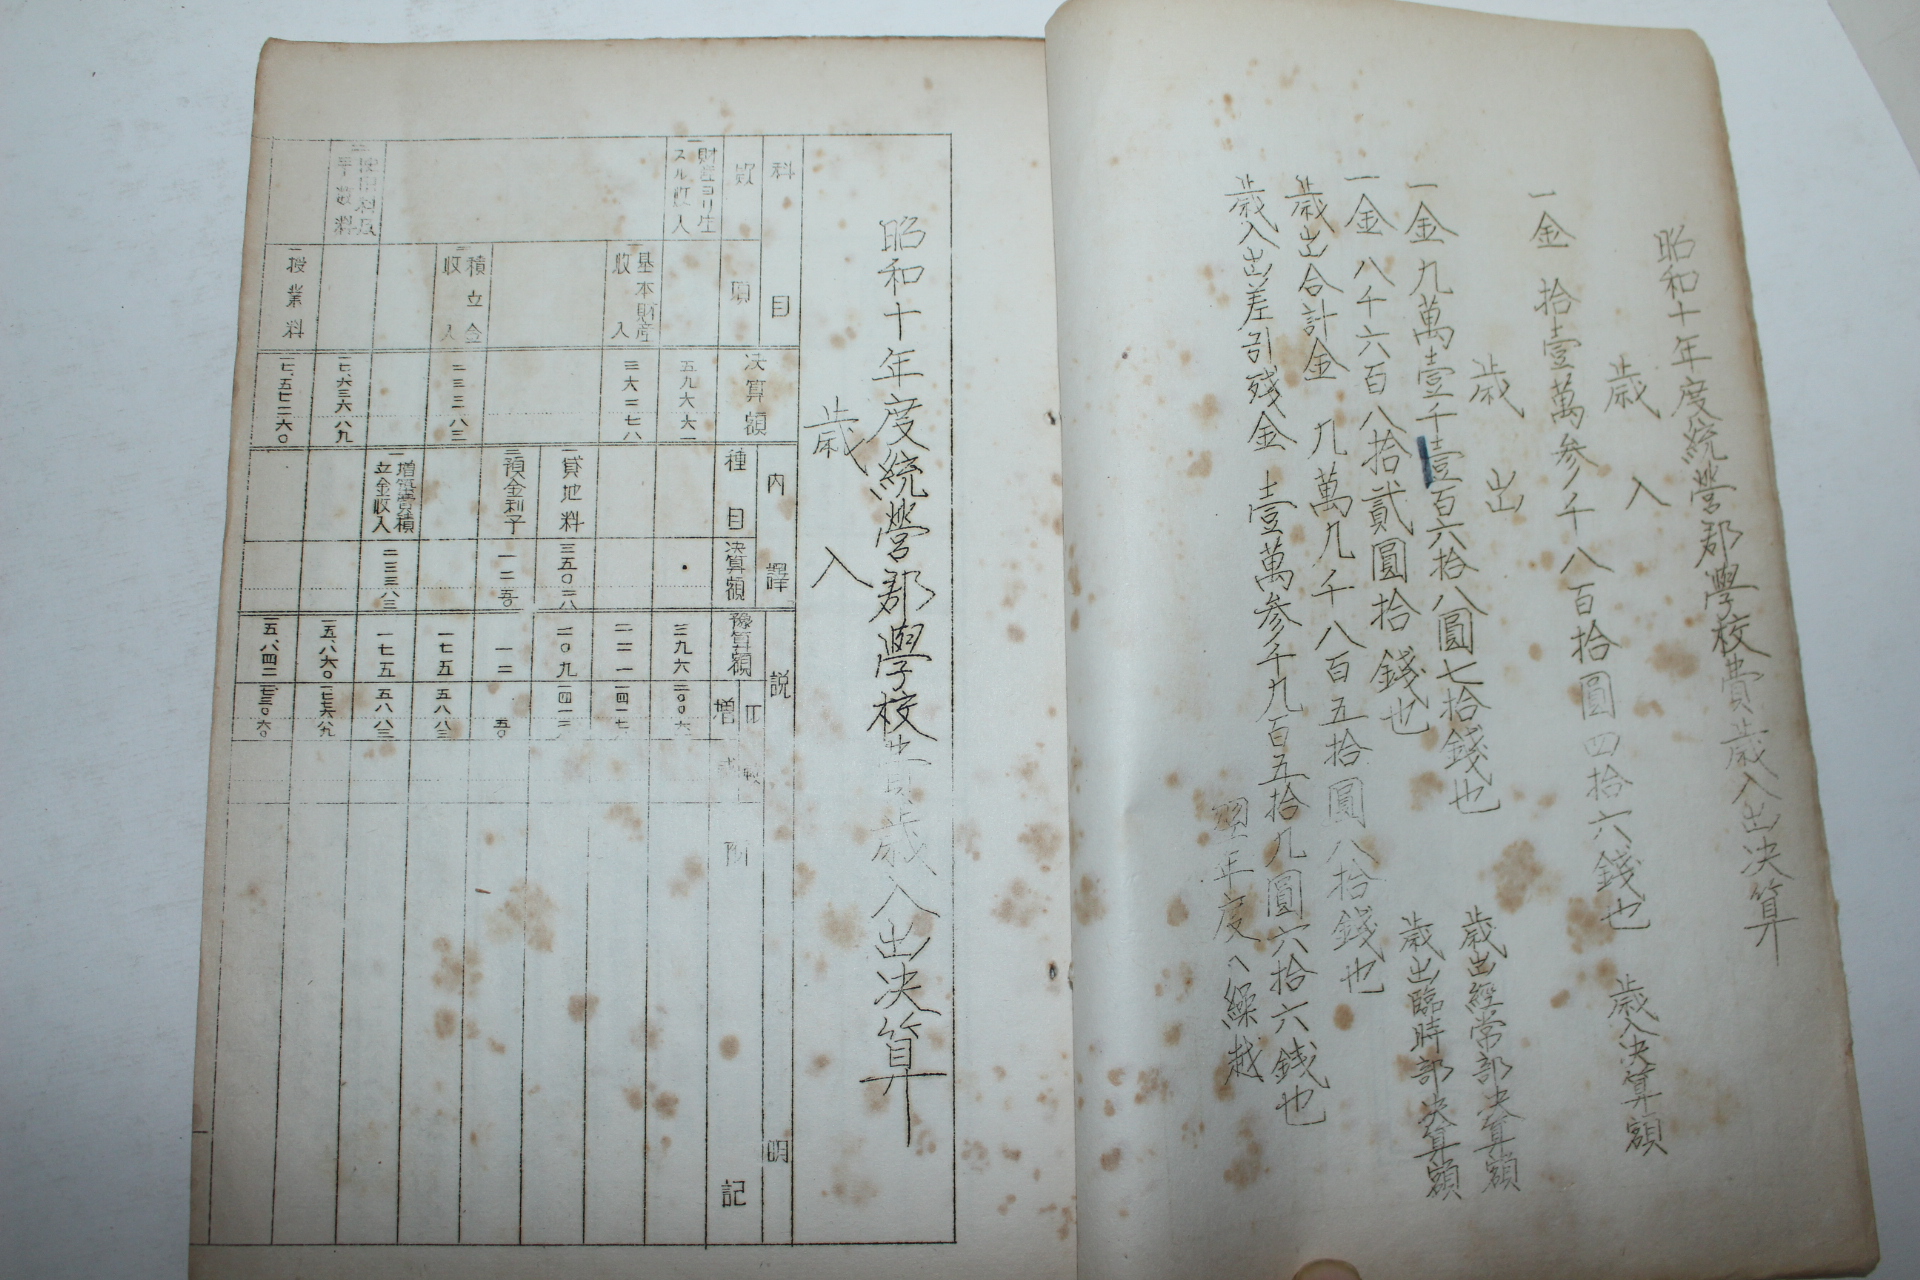 昭和十年度統營郡學校費歲入出決算
歲入
一金拾壹萬參千八百拾圓四拾六錢也 歲入決算額
歲出
一金九萬壹千壹百六拾八圓七拾錢也 歲出經常部決算額
一金八千六百八拾貳圓拾錢也 歲出臨時部決算額
歲出合計金九萬九千八百五拾圓八拾錢也
歲入出差引殘金壹萬參千九百五拾九圓六拾六錢也
翌年度へ繰越
昭和十年度統營郡學校費歲入出決算
歲入
科目
決算額
內譯
說明
款
項
種目
決算額
豫算額
增
附記
一財產ヨリ生スル收入
五九六六一
三九六
二〇〇六一
一基本財產收入
三六二七八
二二一
一四一七八
一貸地料
三五〇二八
二〇九
一四一二八
三預金利子
一二五〇
一二
五〇
二積立金收入
二三三八三
一七五
五八八三
一增築費積立金收入
二三三八三
一七五
五八八三
手數料
一七、六三六八九
一五、八六〇
一七七六八九
一授業料
一七、五七二六〇
一五、八四二
一七三〇六〇